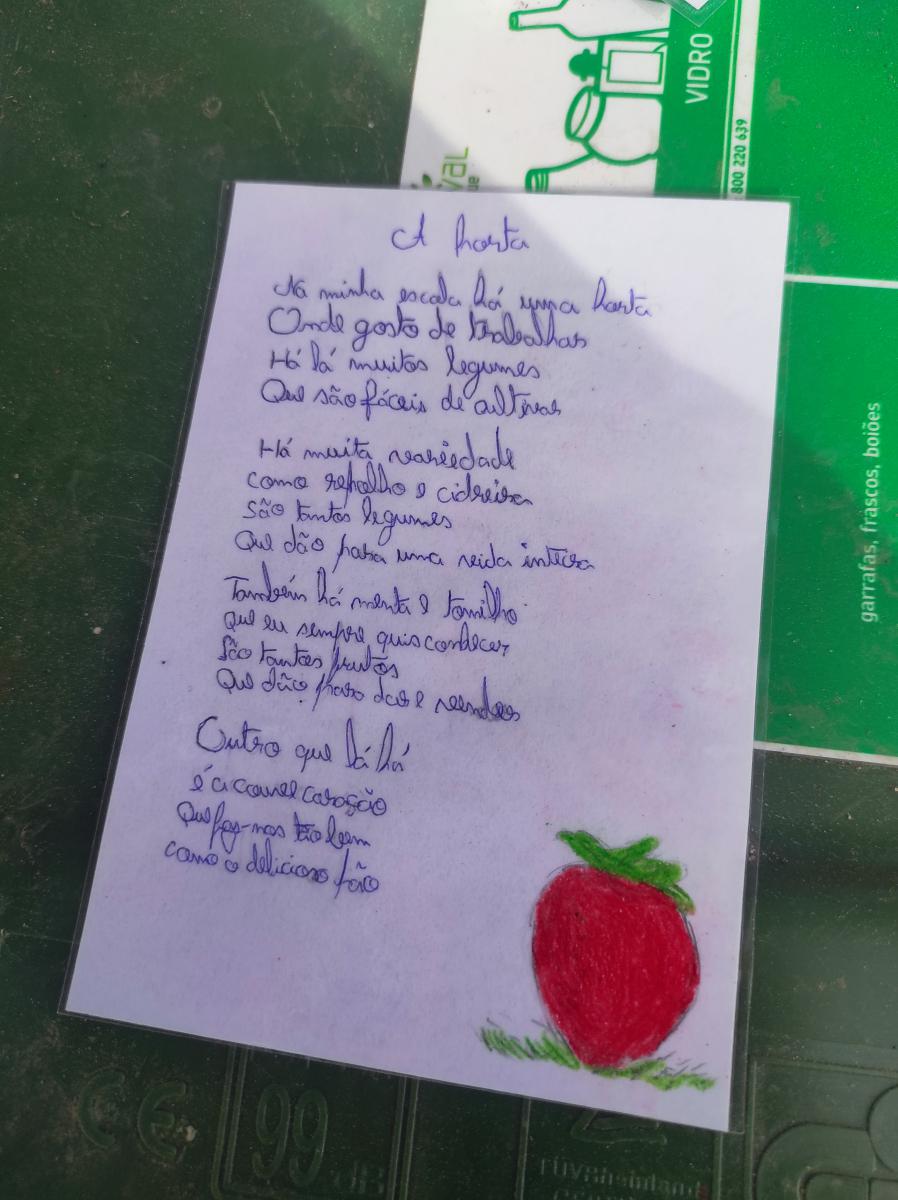 VIDRO
800 220 639
val
garrafas, frascos, boiões
A horta
Na minha escola há uma horta
Onde gosto de trabalhar
Há lá muitos legumes
Que são fáceis de cultivar
Há muita variedade
como repolho e cidreira
são tantos legumes
Que dão para uma vida inteira
Também há menta e tomilho
que eu sempre quis conhecer
são tantos frutos
Que dão para dar e vender
Outro que lá há
é a couve coração
Que faz-nos tão bem
como o delicioso pão
CE
99
dB